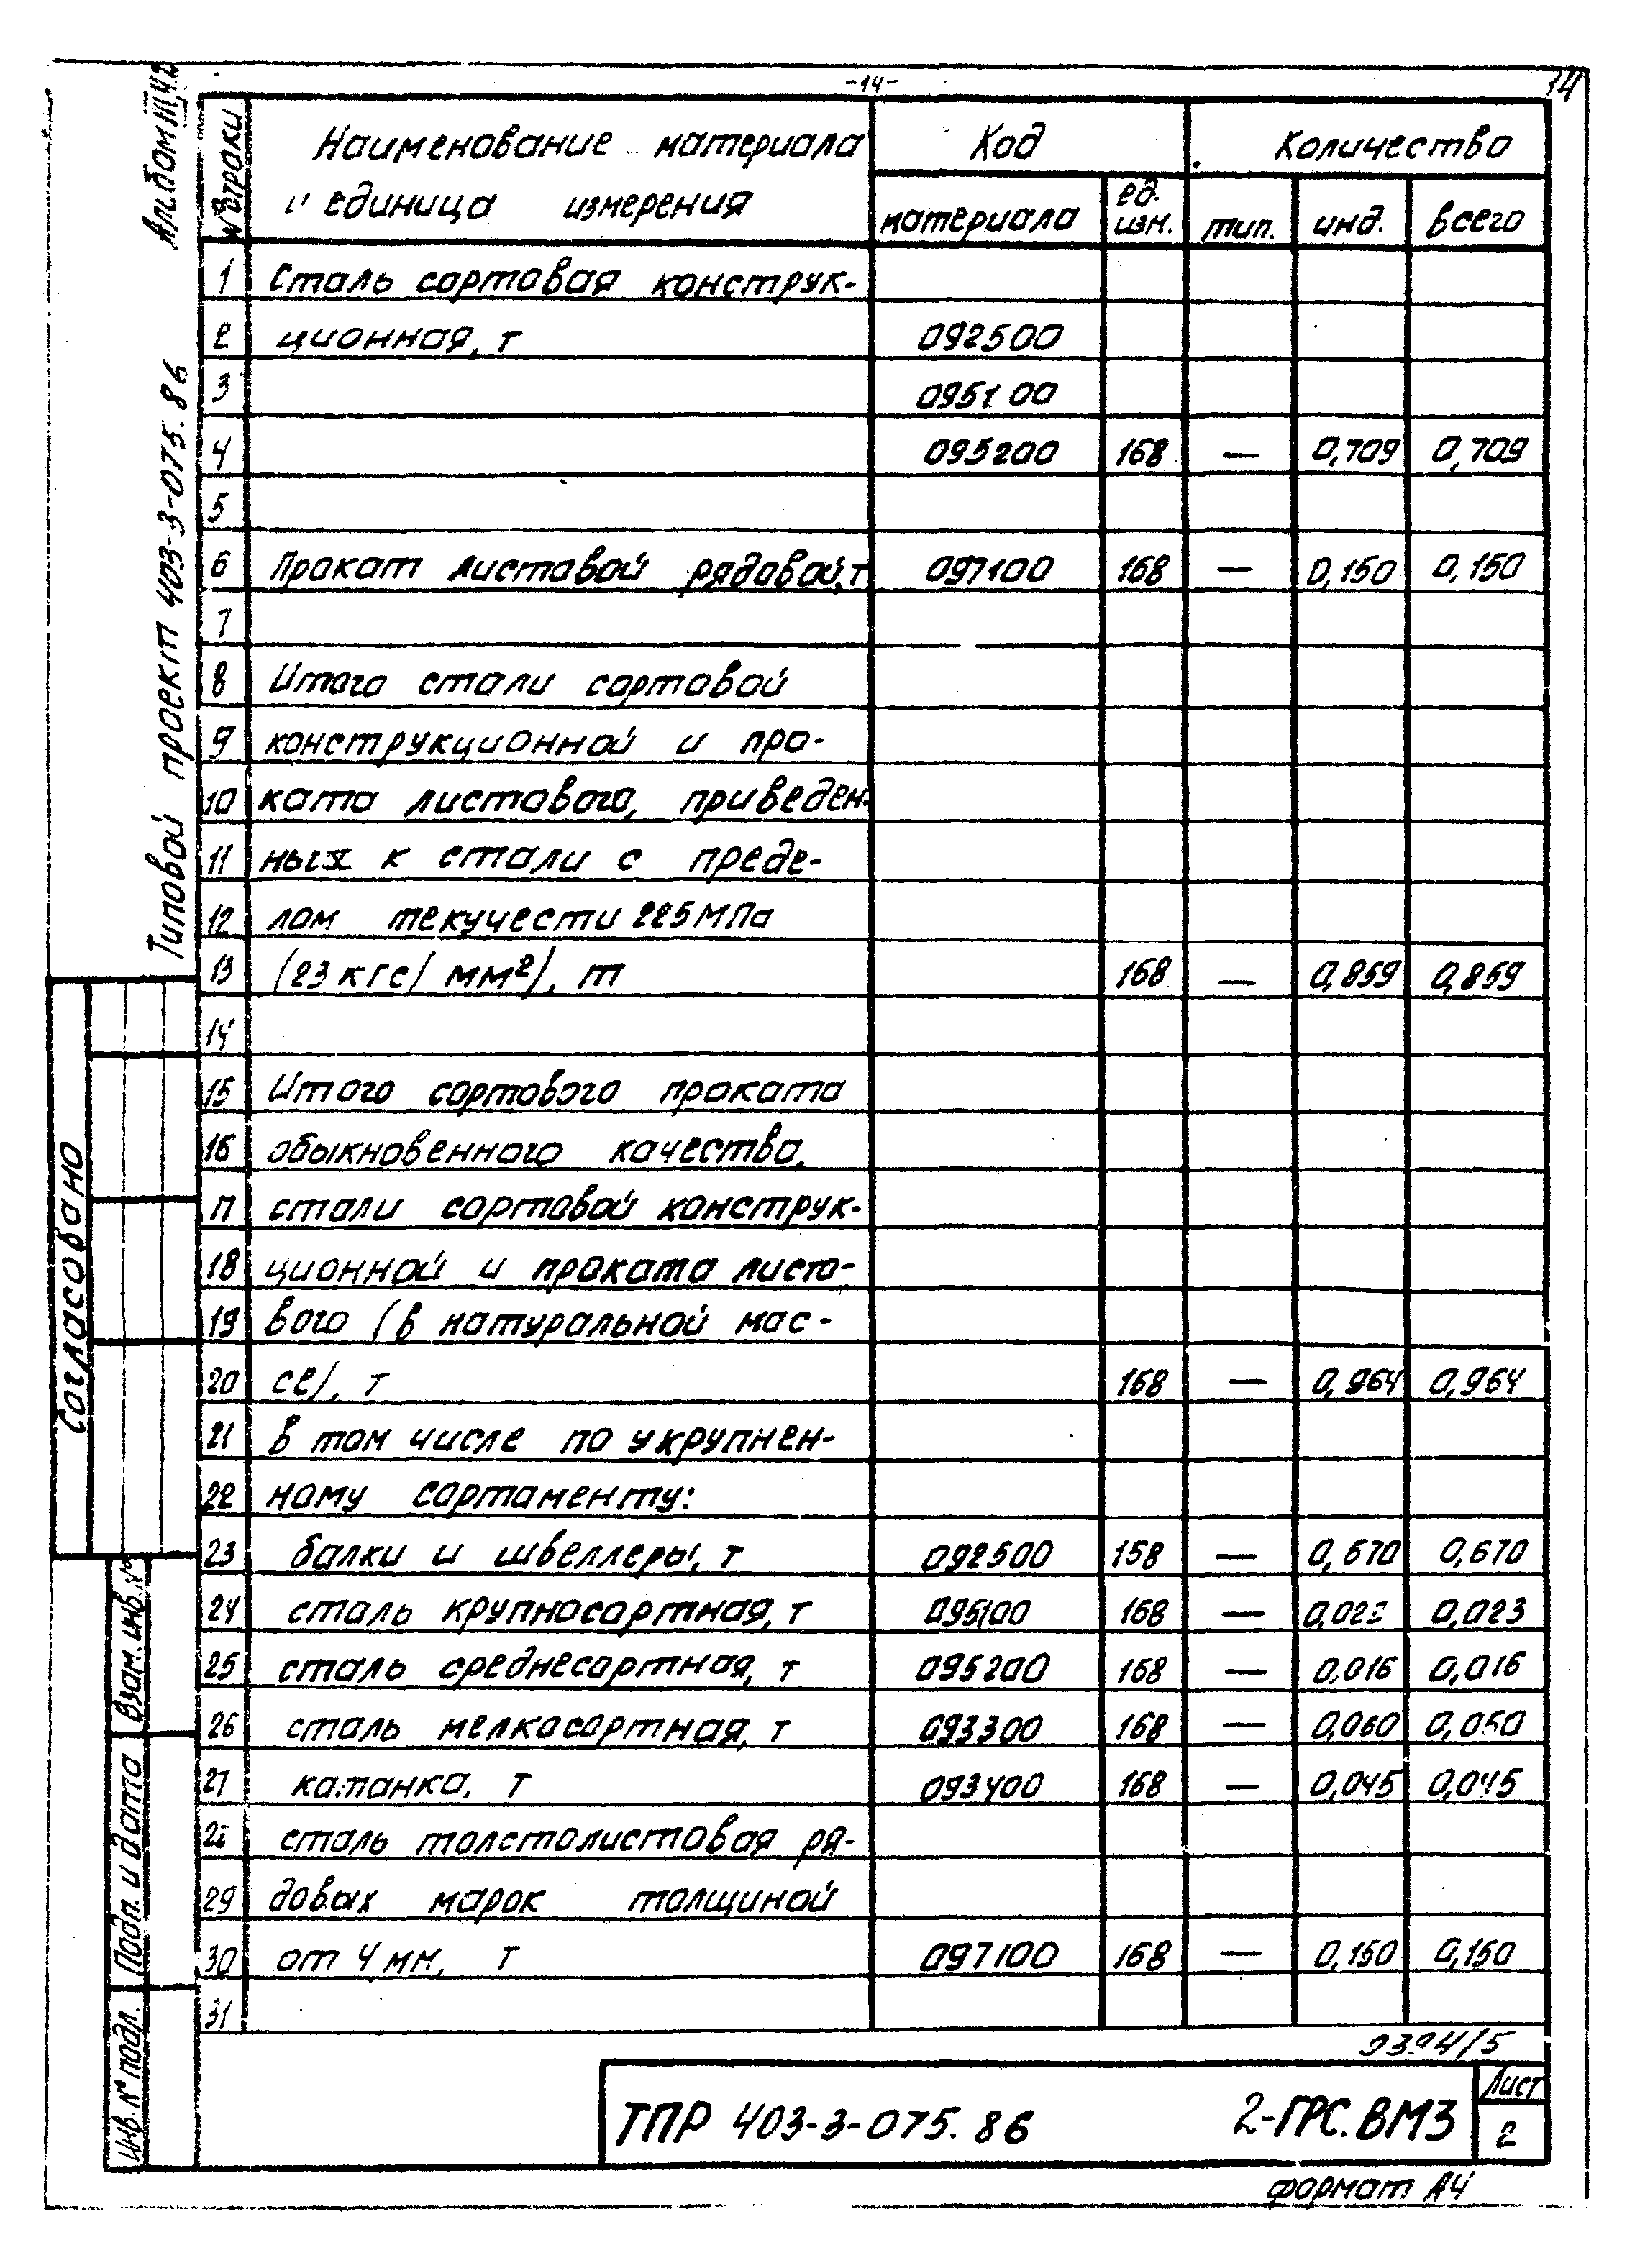 -14-
14
Альбом III ч.2
Типовой проект 403-3-075.86
№ строки
Наименование материала и единица измерения
Код
Количество
материала
ед. изм.
тип.
инд.
всего
1 Сталь сортовая конструк-
2 ционная, т 092500
3 095100
4 095200 168 — 0,709 0,709
5
6 Прокат листовой рядовой, т 097100 168 — 0,150 0,150
7
8 Итого стали сортовой
9 конструкционной и про-
10 ката листового, приведен-
11 ных к стали с преде-
12 лом текучести 225 МПа
13 (23 кгс/мм²), т 168 — 0,859 0,859
14
15 Итого сортового проката
16 обыкновенного качества,
17 стали сортовой конструк-
18 ционной и проката листо-
19 вого (в натуральной мас-
20 се), т 168 — 0,964 0,964
21 в том числе по укрупнен-
22 ному сортаменту:
23 балки и швеллеры, т 092500 158 — 0,670 0,670
24 сталь крупносортная, т 095100 168 — 0,023 0,023
25 сталь среднесортная, т 095200 168 — 0,016 0,016
26 сталь мелкосортная, т 093300 168 — 0,060 0,060
27 катанка, т 093400 168 — 0,045 0,045
28 сталь толстолистовая ря-
29 довых марок толщиной
30 от 4 мм, т 097100 168 — 0,150 0,150
31
Согласовано
Взам. инв. №
Подп. и дата
Инв. № подл.
9394/5
ТПР 403-3-075.86 2-ГРС.ВМ3
Лист
2
формат А4